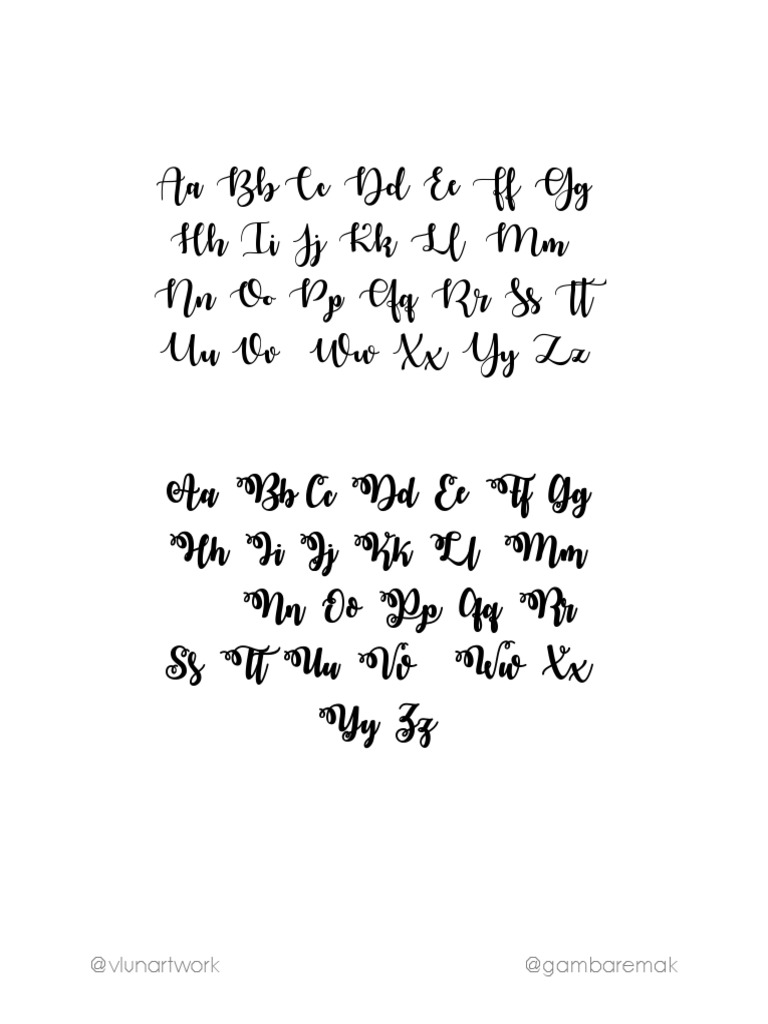 Aa Bb Cc Dd Ee Ff Gg
Hh Ii Jj Kk Ll Mm
Nn Oo Pp Qq Rr Ss Tt
Uu Vv Ww Xx Yy Zz
Aa Bb Cc Dd Ee Ff Gg
Hh Ii Jj Kk Ll Mm
Nn Oo Pp Qq Rr
Ss Tt Uu Vv Ww Xx
Yy Zz
@vlunartwork @gambaremak